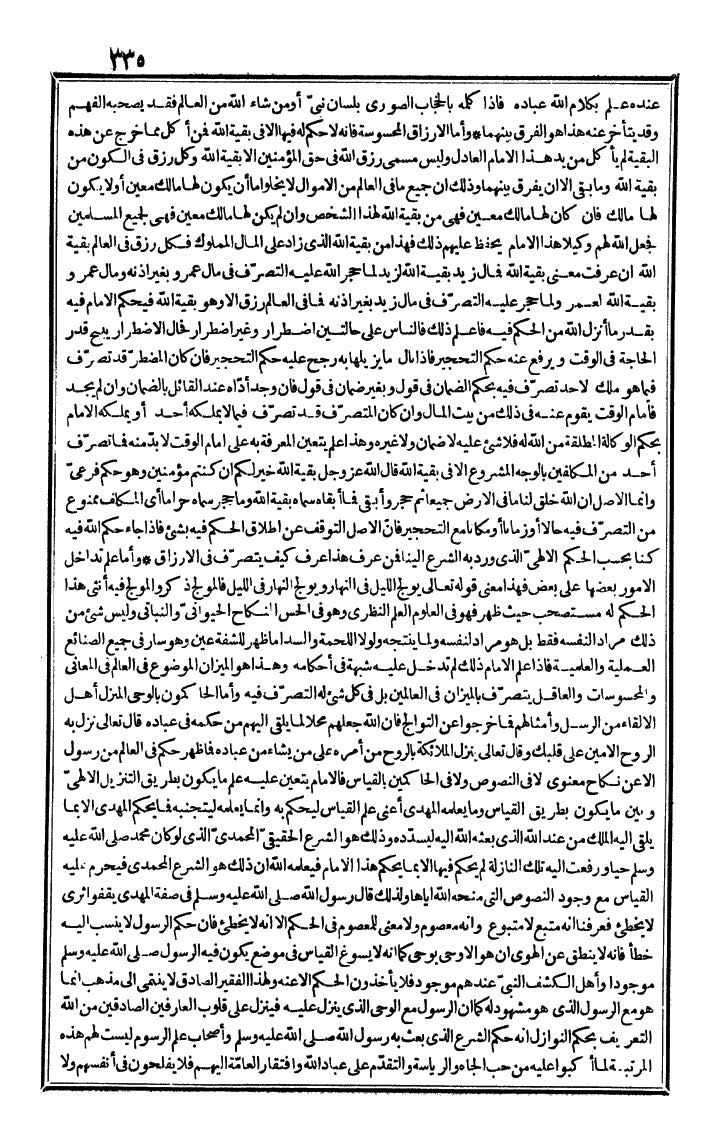 ٣٣٥
عنده علم بكلام الله عباده فاذا كلمه بالحجاب الصورى بلسان نبىّ أو من شاء الله من العالم فقد يصحبه الفهم
وقد يتأخر عنه هذا هو الفرق بينهما * وأما الارزاق المحسوسة فانه لاحكم له فيها الافى بقية الله فمن أكل مما خرج عن هذه
البقية لم يأكل من يد هذا الامام العادل وليس مسمى رزق الله فى حق المؤمنين الا بقية الله وكل رزق فى الكون من
بقية الله وما بقى الا ان يفرق بينهما وذلك ان جميع ما فى العالم من الاموال لا يخلو اما أن يكون لها مالك معين أو لا يكون
لها مالك فان كان لها مالك معين فهى من بقية الله لهذا الشخص وان لم يكن لها مالك معين فهى لجميع المسلمين
فجعل الله لهم وكيلا هذا الامام يحفظ عليهم ذلك فهذا من بقية الله الذى زاد على المال المملوك فكل رزق فى العالم بقية
الله ان عرفت معنى بقية الله فمال زيد بقية الله لزيد لما حجر الله عليه التصرّف فى مال عمرو بغير اذنه ومال عمرو
بقية الله لعمرو لما حجر عليه التصرّف فى مال زيد بغير اذنه فما فى العالم رزق الا وهو بقية الله فيحكم الامام فيه
بقدر ما أنزل الله من الحكم فيه فاعلم ذلك فالناس على حالتين اضطرار وغير اضطرار فحال الاضطرار يبيح قدر
الحاجة فى الوقت ويرفع عنه حكم التحجير فاذا نال ما يزيلها به رجع عليه حكم التحجير فان كان المضطرّ قد تصرّف
فيما هو ملك لاحد تصرّف فيه بحكم الضمان فى قول وبغير ضمان فى قول فان وجد أدّاه عند القائل بالضمان وان لم يجد
فامام الوقت يقوم عنه فى ذلك من بيت المال وان كان المتصرّف قد تصرّف فيما لا يملكه أحد أو يملكه الامام
بحكم الوكالة المطلقة من الله له فلا شئ عليه لا ضمان ولا غيره وهذا علم يتعين المعرفة به على امام الوقت لا بدّ منه فما تصرّف
أحد من المكلفين بالوجه المشروع الا فى بقية الله قال الله عز وجل بقية الله خير لكم ان كنتم مؤمنين وهو حكم فرعىّ
وانما الاصل ان الله خلق لنا ما فى الارض جميعا ثم حجر وأبقى فما أبقاه سماه بقية الله وما حجر سماه حراما أى المكلف ممنوع
من التصرّف فيه حالا أو زمانا أو مكانا مع التحجير فانّ الاصل التوقف عن اطلاق الحكم فيه بشئ فاذا جاء حكم الله فيه
كنا بحسب الحكم الالهىّ الذى ورد به الشرع الينا فمن عرف هذا عرف كيف يتصرّف فى الارزاق * وأما علم تداخل
الامور بعضها على بعض فهذا معنى قوله تعالى يولج الليل فى النهار ويولج النهار فى الليل فالمولج ذكر والمولج فيه أنثى هذا
الحكم له مستصحب حيث ظهر فهو فى العلوم العلم النظرى وهو فى الحس النكاح الحيوانىّ والنباتى وليس شئ من
ذلك مراد النفسه فقط بل هو مراد لنفسه ولما ينتجه ولولا اللحمة والسدا ما ظهر للشفة عين وهو سار فى جميع الصنائع
العملية والعلمية فاذا علم الامام ذلك لم تدخل عليه شبهة فى أحكامه وهذا هو الميزان الموضوع فى العالم فى المعانى
والمحسوسات والعاقل يتصرّف بالميزان فى العالمين بل فى كل شئ له التصرّف فيه وأما الحاكمون بالوحى المنزل أهل
الالقاء من الرسل وأمثالهم فما خرجوا عن التوالج فان الله جعلهم محلا لما يلقى اليهم من حكمه فى عباده قال تعالى نزل به
الروح الامين على قلبك وقال تعالى ينزل الملائكة بالروح من أمره على من يشاء من عباده فما ظهر حكم فى العالم من رسول
الا عن نكاح معنوى لا فى النصوص ولا فى الحاكمين بالقياس فالامام يتعين عليه علم ما يكون بطريق التنزيل الالهىّ
وبين ما يكون بطريق القياس وما يعلمه المهدى أعنى علم القياس ليحكم به وانما يعلمه ليتجنبه فما يحكم المهدى الا بما
يلقى اليه الملك من عند الله الذى بعثه الله اليه ليسدّده وذلك هو الشرع الحقيقىّ المحمدىّ الذى لو كان محمد صلى الله عليه
وسلم حيا ورفعت اليه تلك النازلة لم يحكم فيها الا بما يحكم هذا الامام فيعلمه الله ان ذلك هو الشرع المحمدى فيحرم عليه
القياس مع وجود النصوص التى منحه الله اياها ولذلك قال رسول الله صلى الله عليه وسلم فى صفة المهدى يقفو اثرى
لا يخطئ فعرفنا انه متبع لا متبوع وانه معصوم ولا معنى للمعصوم فى الحكم الا انه لا يخطئ فان حكم الرسول لا ينسب اليه
خطأ فانه لا ينطق عن الهوى ان هو الا وحى يوحى كما انه لا يسوغ القياس فى موضع يكون فيه الرسول صلى الله عليه وسلم
موجودا وأهل الكشف النبىّ عندهم موجود فلا يأخذون الحكم الا عنه ولهذا الفقير الصادق لا ينتمى الى مذهب انما
هو مع الرسول الذى هو مشهود له كما ان الرسول مع الوحى الذى ينزل عليه فينزل على قلوب العارفين الصادقين من الله
التعريف بحكم النوازل انه حكم الشرع الذى بعث به رسول الله صلى الله عليه وسلم وأصحاب علم الرسوم ليست لهم هذه
المرتبة لما أكبوا عليه من حب الجاه والرياسة والتقدّم على عباد الله وافتقار العامّة اليهم فلا يفلحون فى أنفسهم ولا